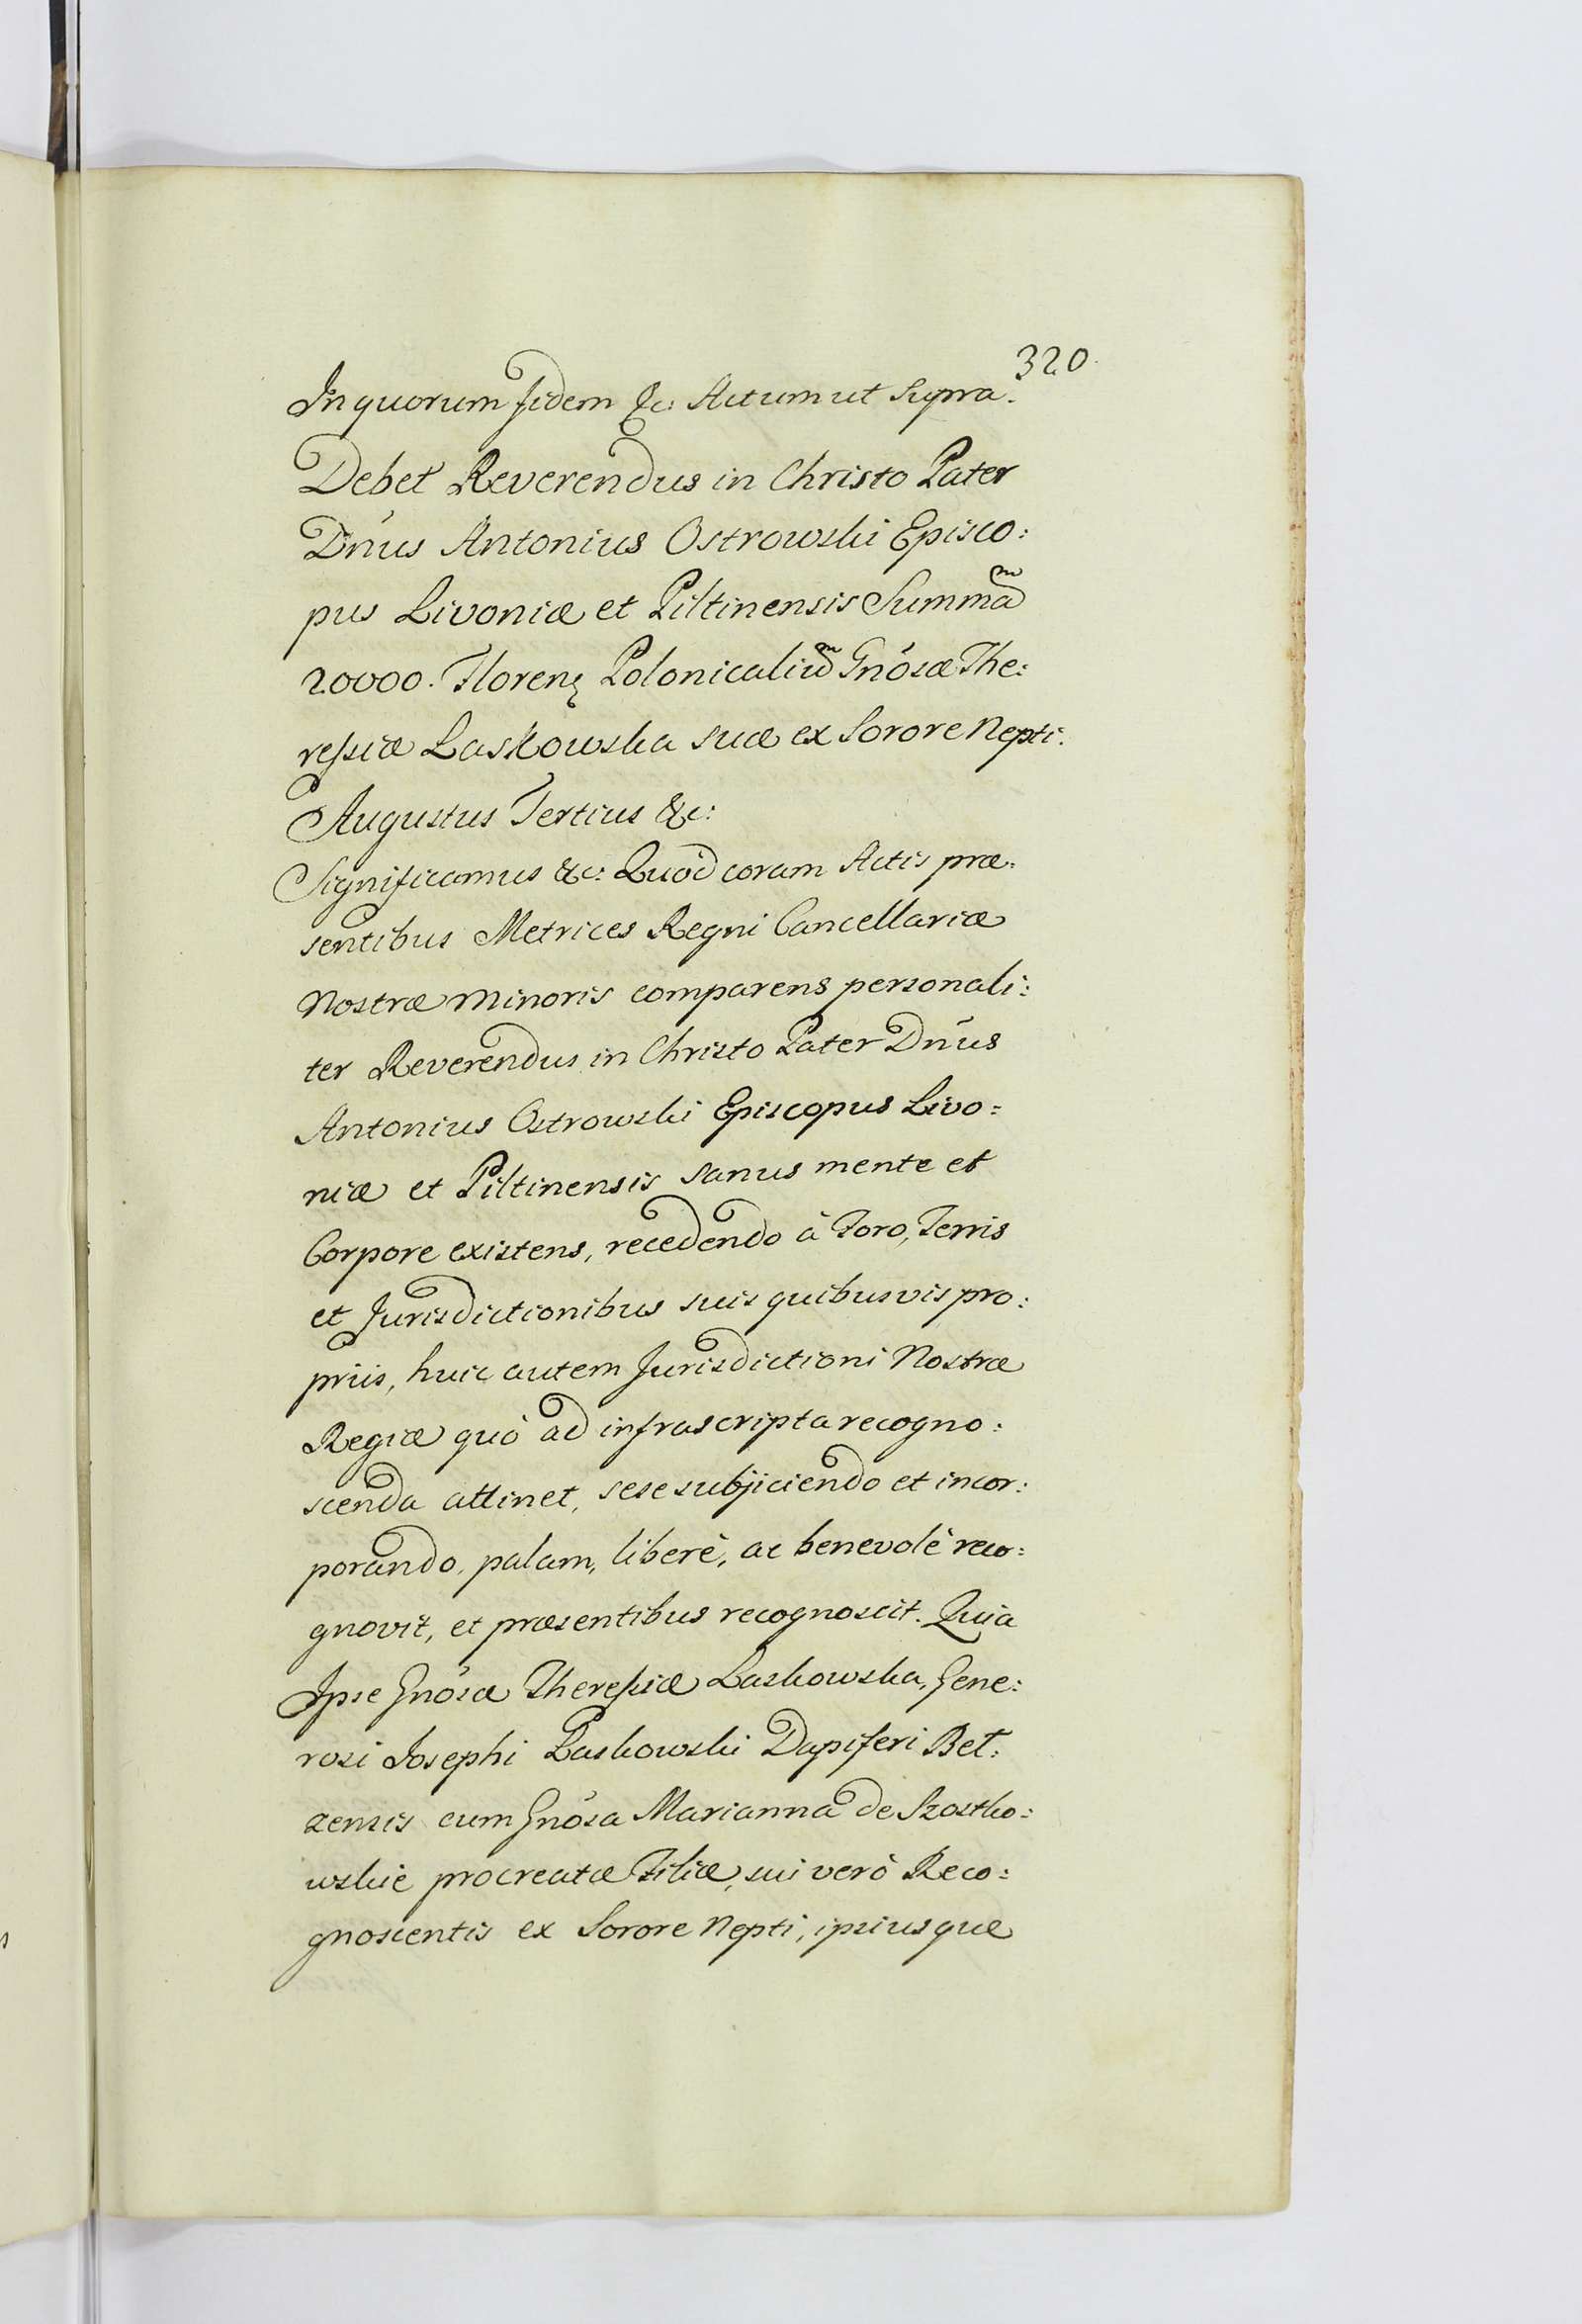 320.
In quorum fidem &c: Actum ut supra.
Debet Reverendus in Christo Pater
Dn̄us Antonius Ostrowski Episco:
pus Livoniæ et Piltinensis Summam̃
20000. Floren: Polonicalium̃ Gnōsæ The:
ressiæ Laskowska suæ ex Sorore Nepti.
Augustus Tertius &c:
Significamus &c: Quod coram Actis præ:
sentibus Metrices Regni Cancellariæ
Nostræ Minoris comparens personali:
ter Reverendus in Christo Pater Dn̄us
Antonius Ostrowski Episcopus Livo:
niæ et Piltinensis sanus mente et
Corpore existens, recedendo à Foro, Terris
et Jurisdictionibus suis quibusvis pro:
priis, huic autem Jurisdictioni Nostræ
Regiæ quò ad infrascripta recogno:
scenda attinet, sese subjiciendo et incor:
porando, palam, liberè, ac benevolè reco:
gnovit, et præsentibus recognoscit. Quia
Ipse Gnōsæ Theressiæ Laskowska, Gene:
rosi Josephi Laskowski Dapiferi Bel:
zensis cum Gnōsa Marianna de Szostko:
wskie procreatæ Filiæ, sui verò Reco:
gnoscentis ex Sorore Nepti, ipsiusque